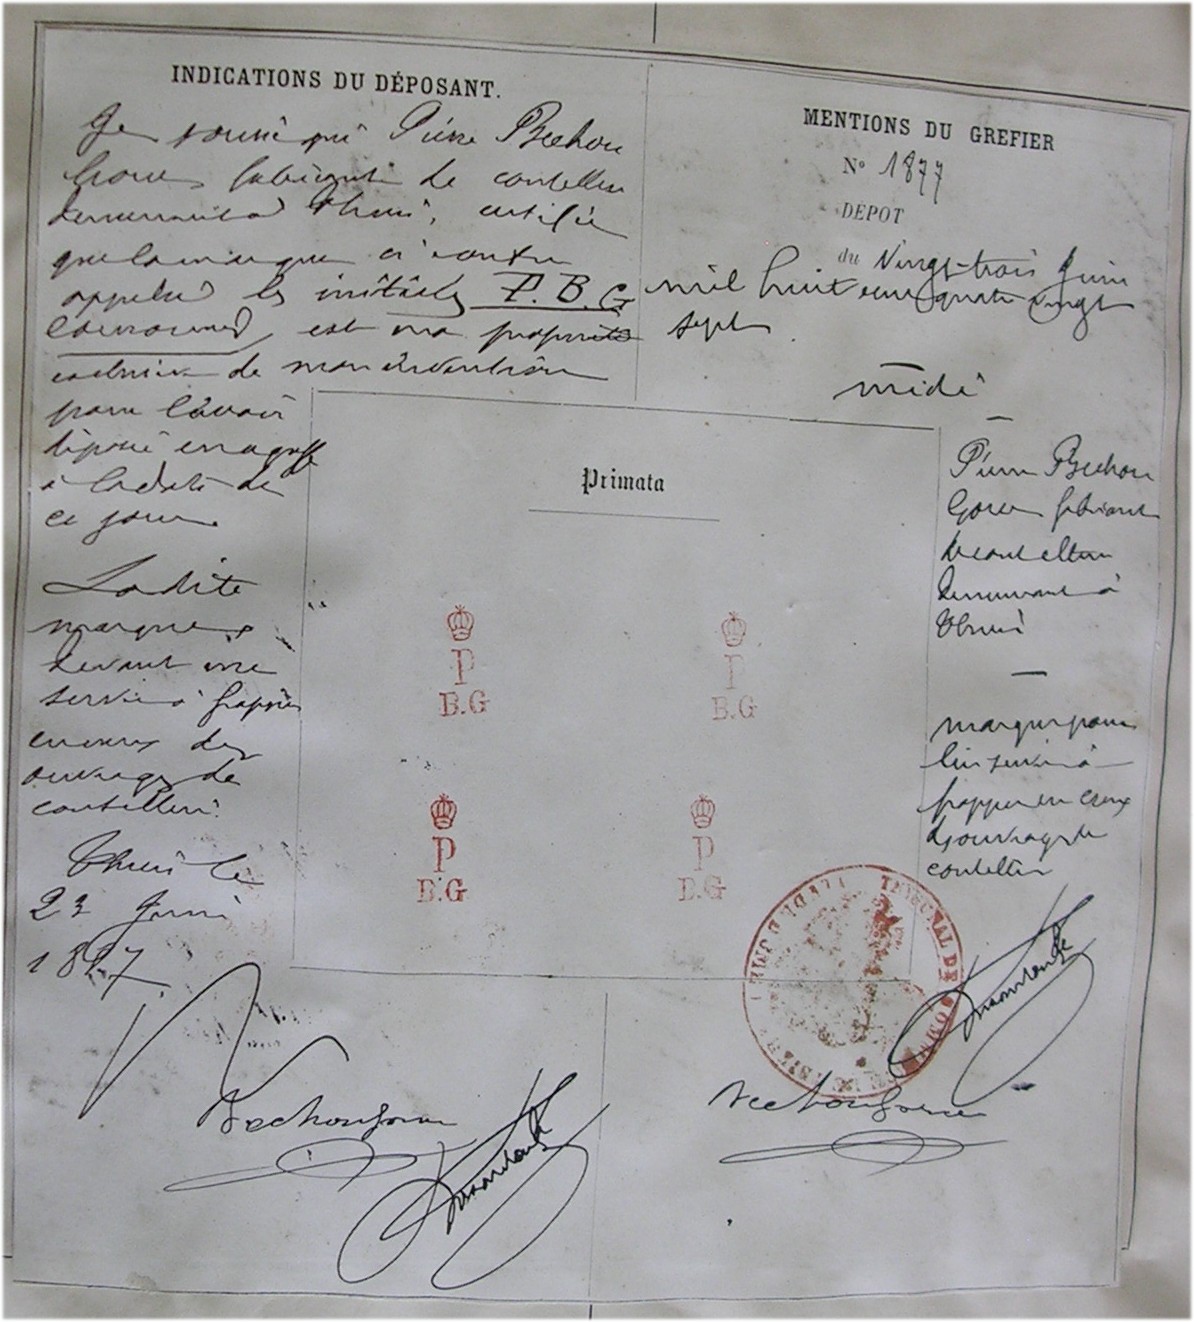 INDICATIONS DU DÉPOSANT.
Je soussigné Pierre Bechon
Gorce fabricant de coutellerie
demeurant à Thiers, certifie
que la marque ci contre
appelée les initiales P. B. G
couronné, est ma propriété
de mon invention
pour l'avoir
déposé au greffe
à la date de
ce jour.
Ladite
marque
devant me
servir à frapper
en creux des
ouvrages de
coutellerie.
Thiers le
23 Juin
1887.
Bechon Gorce
MENTIONS DU GREFIER
No 1877
DÉPOT
du Vingt-trois Juin
mil huit cent quatre vingt
sept.
midi
Pierre Bechon
Gorce fabricant
de coutellerie
demeurant à
Thiers
marque pour
lui servir à
frapper en creux
d'ouvrages de
coutellerie
Primata
P
B.G
P
B.G
P
B.G
P
B.G
TRIBUNAL DE COMM
Bechon Gorce